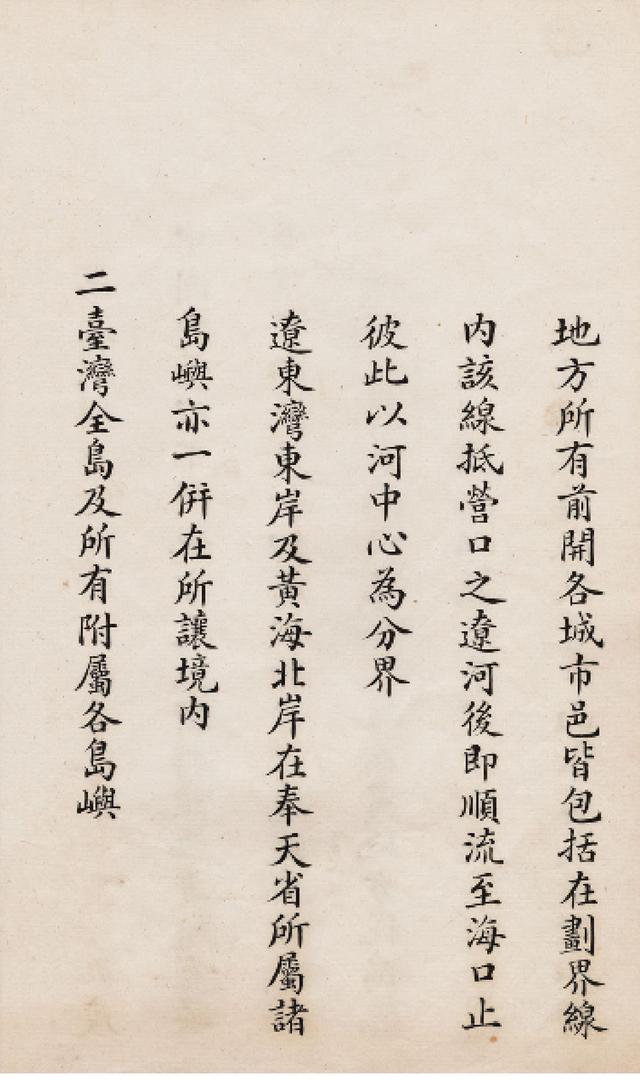 地方所有前開各城市邑皆包括在劃界線
内該線抵營口之遼河後即順流至海口止
彼此以河中心為分界
遼東灣東岸及黃海北岸在奉天省所屬諸
島嶼亦一併在所讓境内
二臺灣全島及所有附屬各島嶼